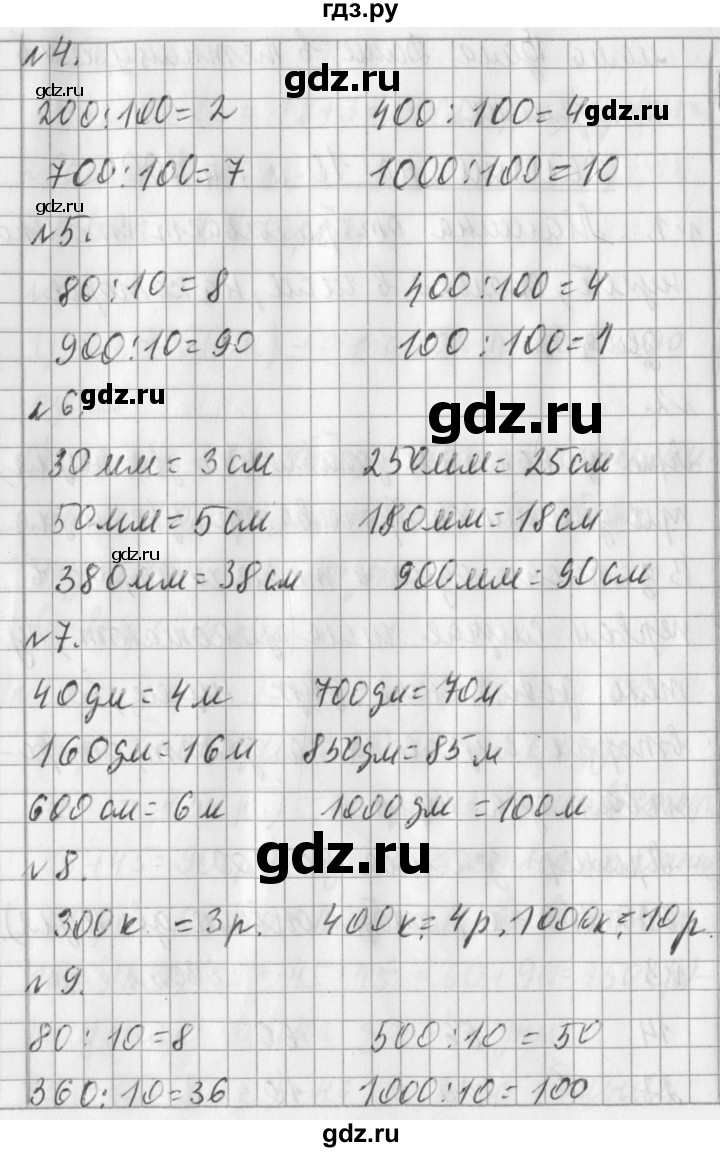 гдз.ру
№4.
gdz.ru gdz.ru
200:100=2 400:100=4 gdz.ru
700:100=7 1000:100=10
gdz.ru
№5.
80:10=8 400:100=4
900:10=90 100:100=1
№6. gdz.ru gdz.ru
30мм=3см 250мм=25см
50мм=5см 180мм=18см
gdz.ru
380мм=38см 900мм=90см
№7.
40дм=4м 700дм=70м
160дм=16м 850дм=85м
600см=6м 1000дм=100м
gdz.ru
№8.
300к.=3р. 400к.=4р, 1000к.=10р.
№9.
80:10=8 500:10=50
360:10=36 1000:10=100
gdz.ru